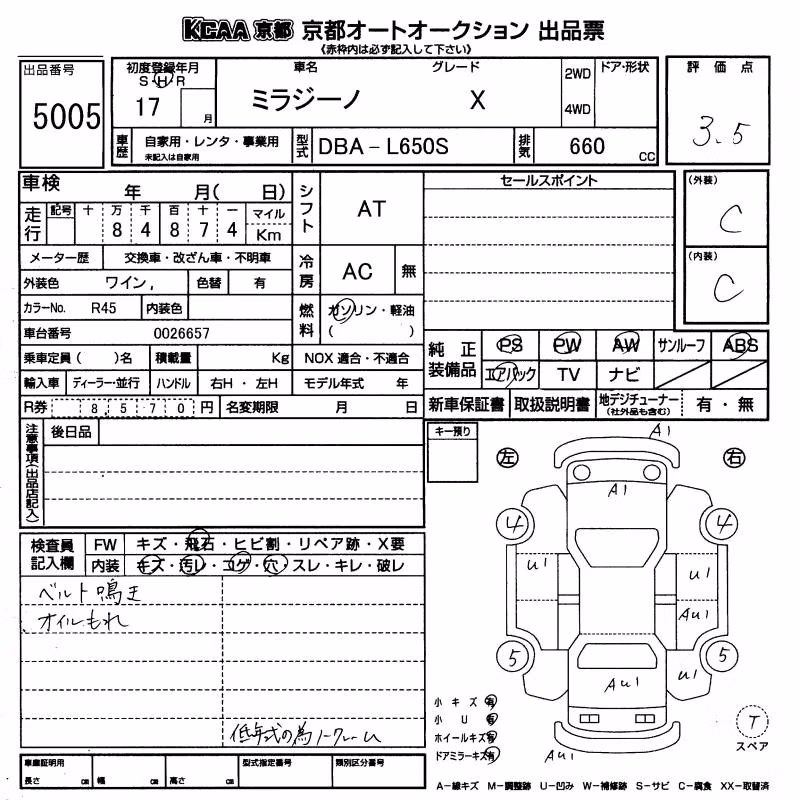 KCAA 京都 京都オートオークション 出品票
《赤枠内は必ず記入して下さい》
出品番号
5005
初度登録年月
S・H・R
17 月
車名
ミラジーノ
グレード
X
2WD
4WD
ドア・形状
評価点
3.5
車歴
自家用・レンタ・事業用
未記入は自家用
型式
DBA-L650S
排気
660 CC
車検 年 月( 日)
走行
記号 十 万 千 百 十 一 マイル
8 4 8 7 4 Km
メーター歴 交換車・改ざん車・不明車
外装色 ワイン, 色替 有
カラーNo. R45 内装色
車台番号 0026657
乗車定員( )名 積載量 Kg NOX 適合・不適合
輸入車 ディーラー・並行 ハンドル 右H・左H モデル年式 年
R券 8,570円 名変期限 月 日
シフト AT
冷房 AC 無
燃料 ガソリン・軽油
( )
セールスポイント
(外装)
C
(内装)
C
純正装備品
PS PW AW サンルーフ ABS
エアバック TV ナビ
新車保証書 取扱説明書 地デジチューナー(社外品も含む) 有・無
注意事項(出品店記入)
後日品
キー預り
検査員記入欄
FW キズ・飛石・ヒビ割・リペア跡・X要
内装 キズ・汚レ・コゲ・穴・スレ・キレ・破レ
ベルト鳴き
オイルもれ
低年式の為ノークレーム
左
右
A1
A1
4
4
U1
U1
AU1
5
5
U1
AU1
AU1
小キズ 有
小U 有
ホイールキズ 有
ドアミラーキズ 有
T
スペア
車庫証明用
長さ cm 幅 cm 高さ cm
型式指定番号
類別区分番号
A-線キズ M-調整跡 U-凹み W-補修跡 S-サビ C-腐食 XX-取替済